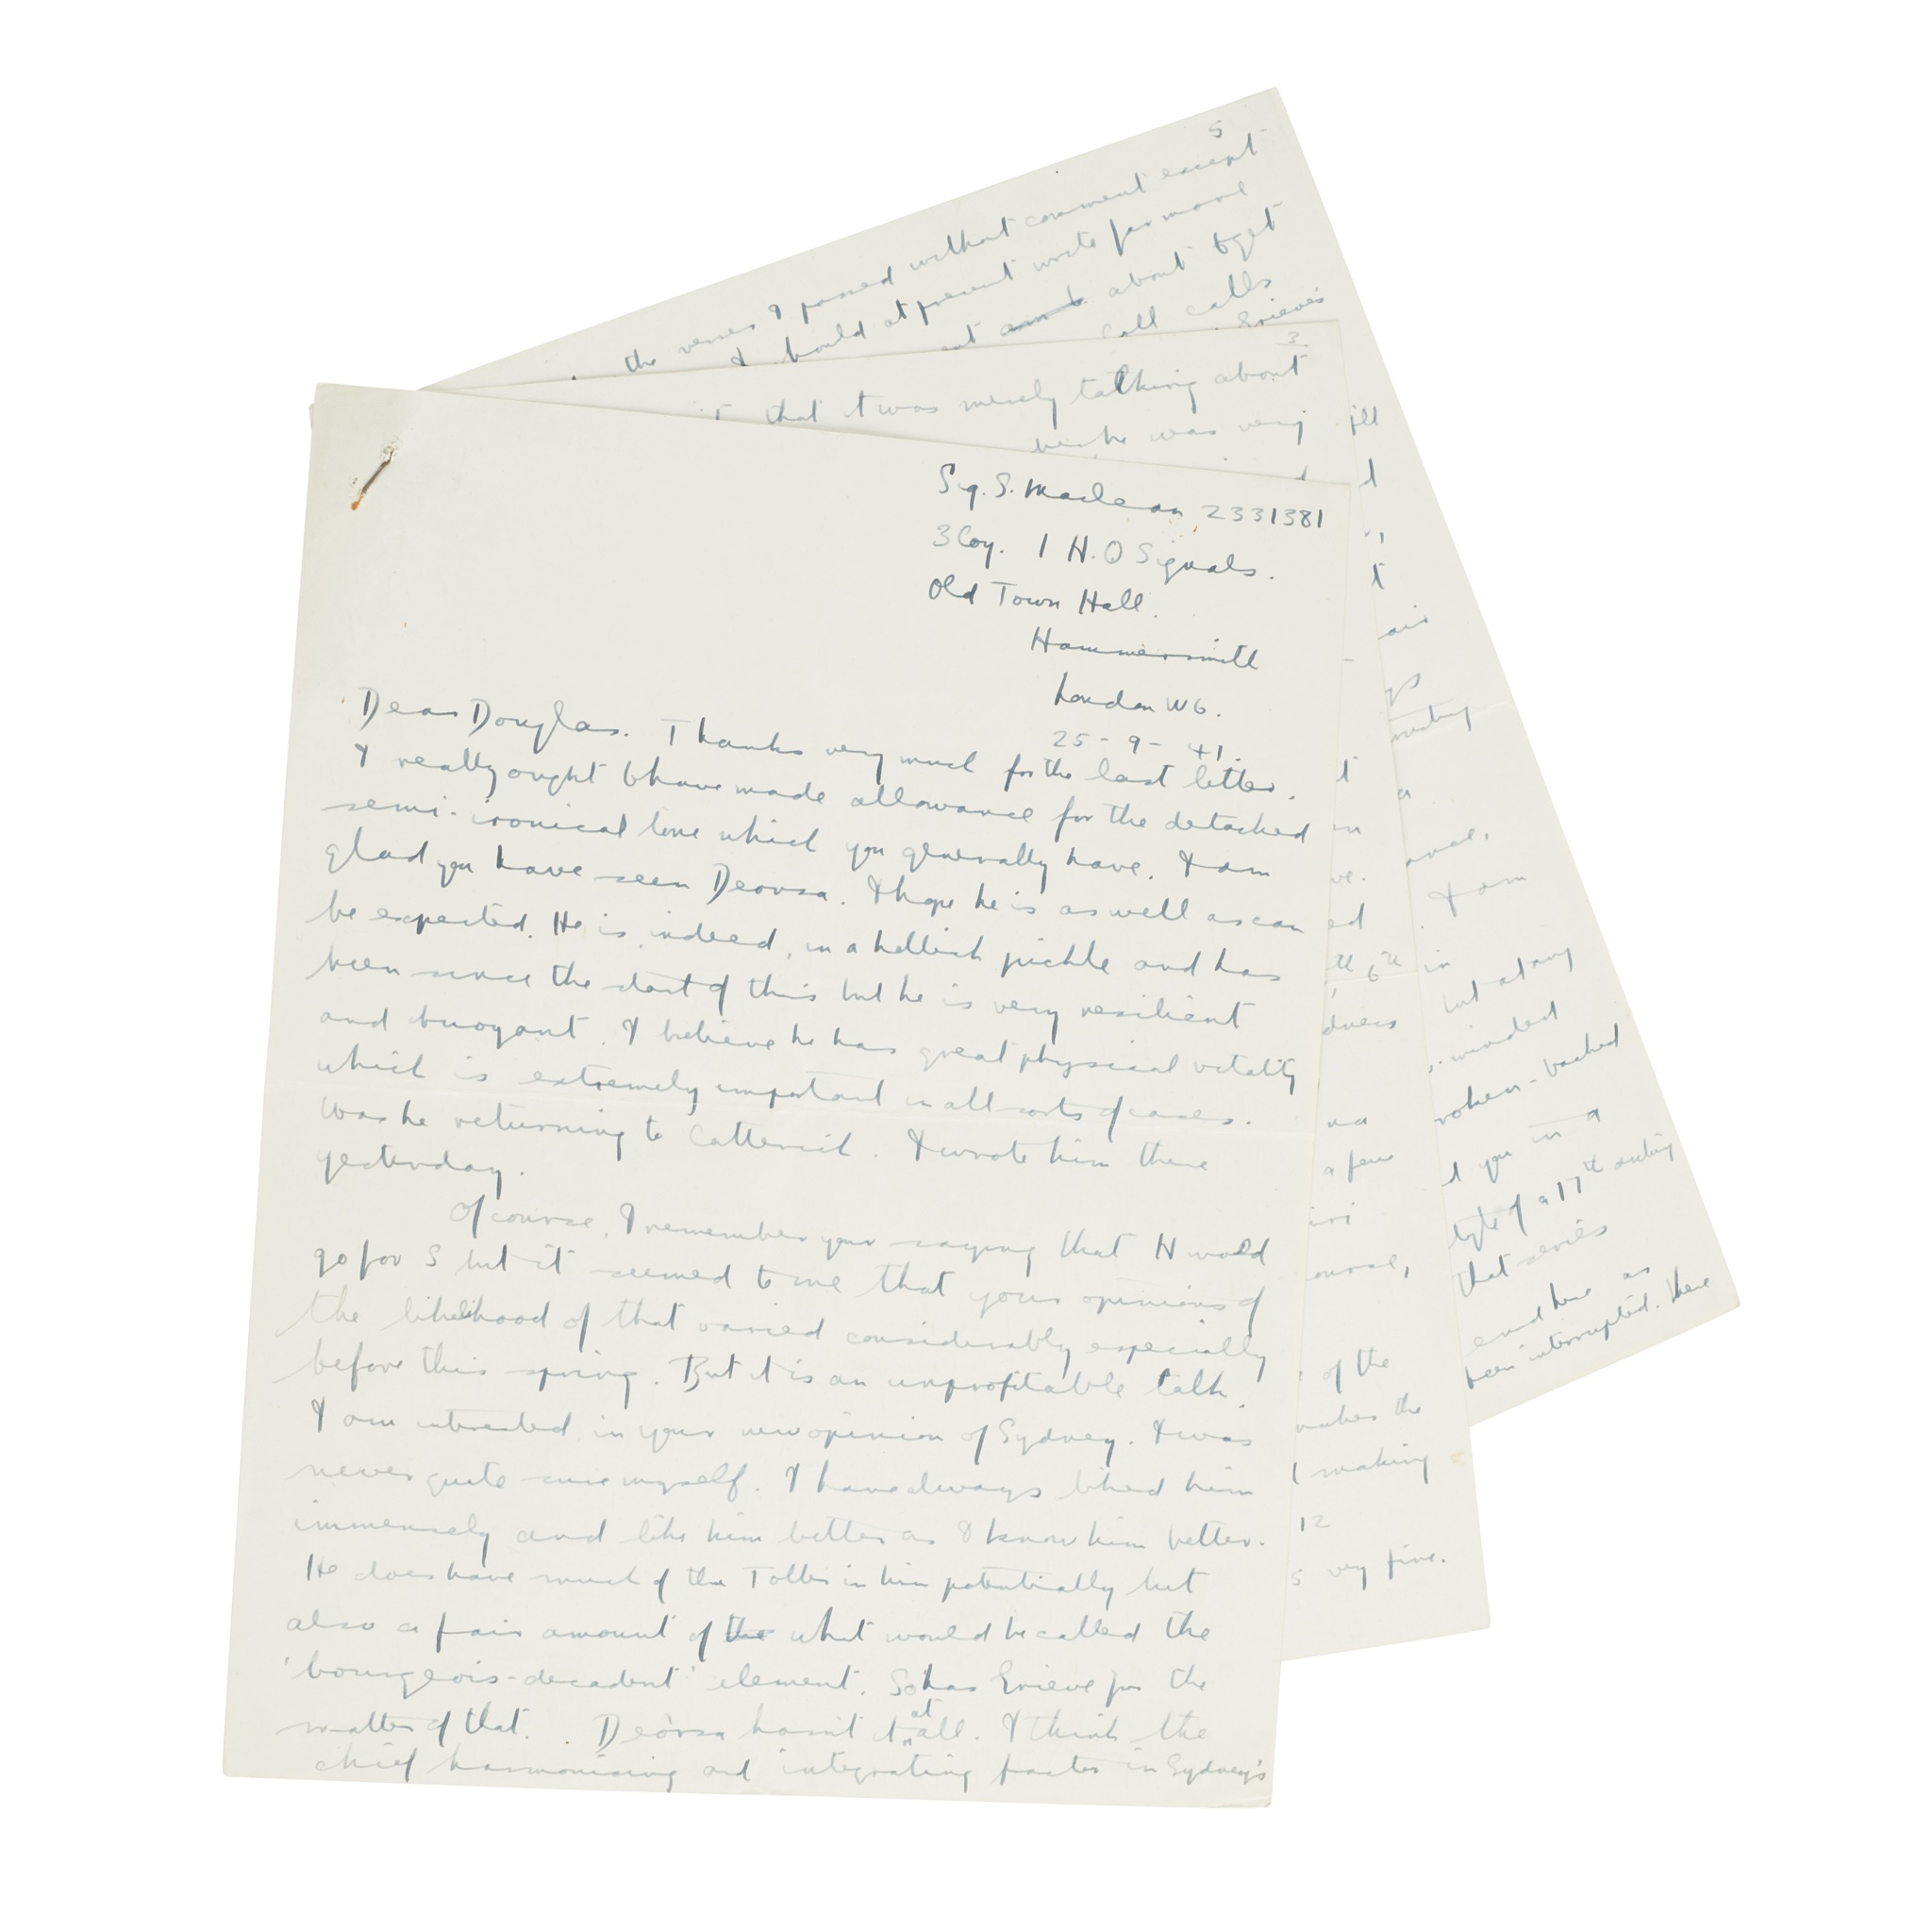 5
the verses I passed without comment except
I should at present write far more
about to get
call calls
Grieve's
3
that it was merely talking about
he was very
Sig. S. Maclean 2331381
3 Coy. 1 H.Q Signals.
Old Town Hall.
Hammersmith
London W6.
25-9-41.
Dear Douglas. Thanks very much for the last letter.
I really ought to have made allowance for the detached
semi-ironical tone which you generally have. I am
glad you have seen Deorsa. I hope he is as well as can
be expected. He is, indeed, in a hellish pickle and has
been since the start of this but he is very resilient
and buoyant. I believe he has great physical vitality
which is extremely important in all sorts of cases.
Was he returning to Catterick. I wrote him there
yesterday.
Of course, I remember your saying that H would
go for S but it seemed to me that your opinions of
the likelihood of that varied considerably especially
before this spring. But it is an unprofitable talk.
I am interested in your new opinion of Sydney. I was
never quite sure myself. I have always liked him
immensely and like him better as I know him better.
He does have much of the Toller in him potentially but
also a fair amount of the what would be called the
'bourgeois-decadent' element. So has Grieve for the
matter of that. Deòrsa hasn't it at all. I think the
chief harmonising and integrating factor in Sydney's
ve.
ed
6th
a few
course,
of the
makes the
making
12
very fine.
I am
in
but at any
minded
broken-backed
you in a
style of a 17th century
that series
end here as
been interrupted. here